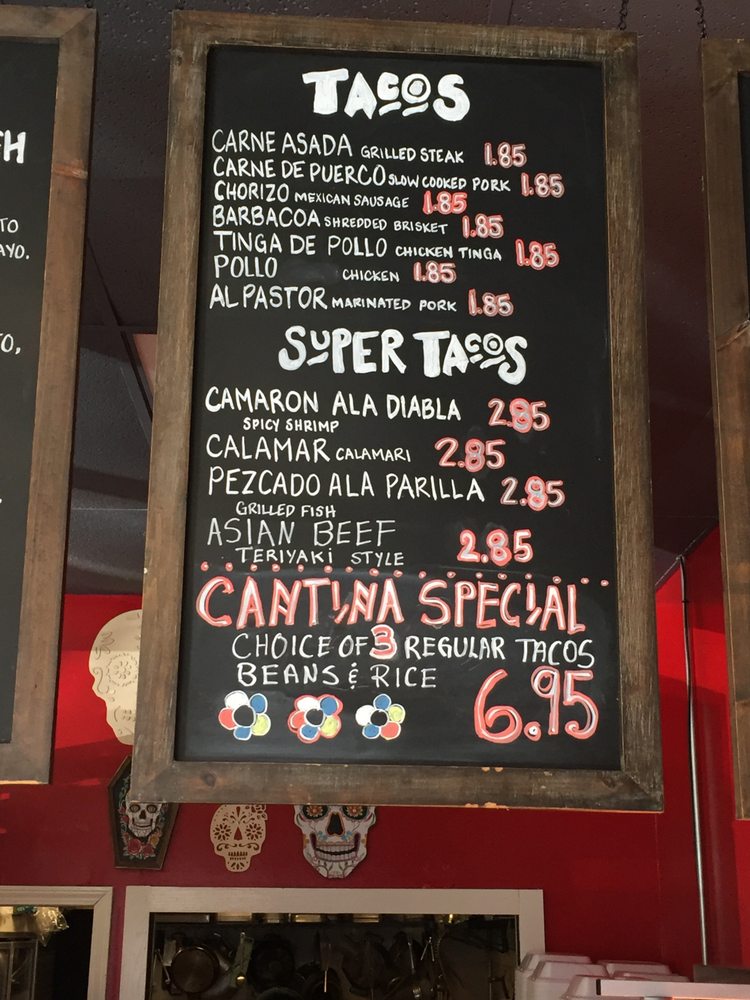 TACOS
CARNE ASADA GRILLED STEAK 1.85
CARNE DE PUERCO SLOW COOKED PORK 1.85
CHORIZO MEXICAN SAUSAGE 1.85
BARBACOA SHREDDED BRISKET 1.85
TINGA DE POLLO CHICKEN TINGA 1.85
POLLO CHICKEN 1.85
AL PASTOR MARINATED PORK 1.85
SUPER TACOS
CAMARON ALA DIABLA 2.85
SPICY SHRIMP
CALAMAR CALAMARI 2.85
PEZCADO ALA PARILLA 2.85
GRILLED FISH
ASIAN BEEF
TERIYAKI STYLE 2.85
CANTINA SPECIAL
CHOICE OF 3 REGULAR TACOS
BEANS & RICE 6.95